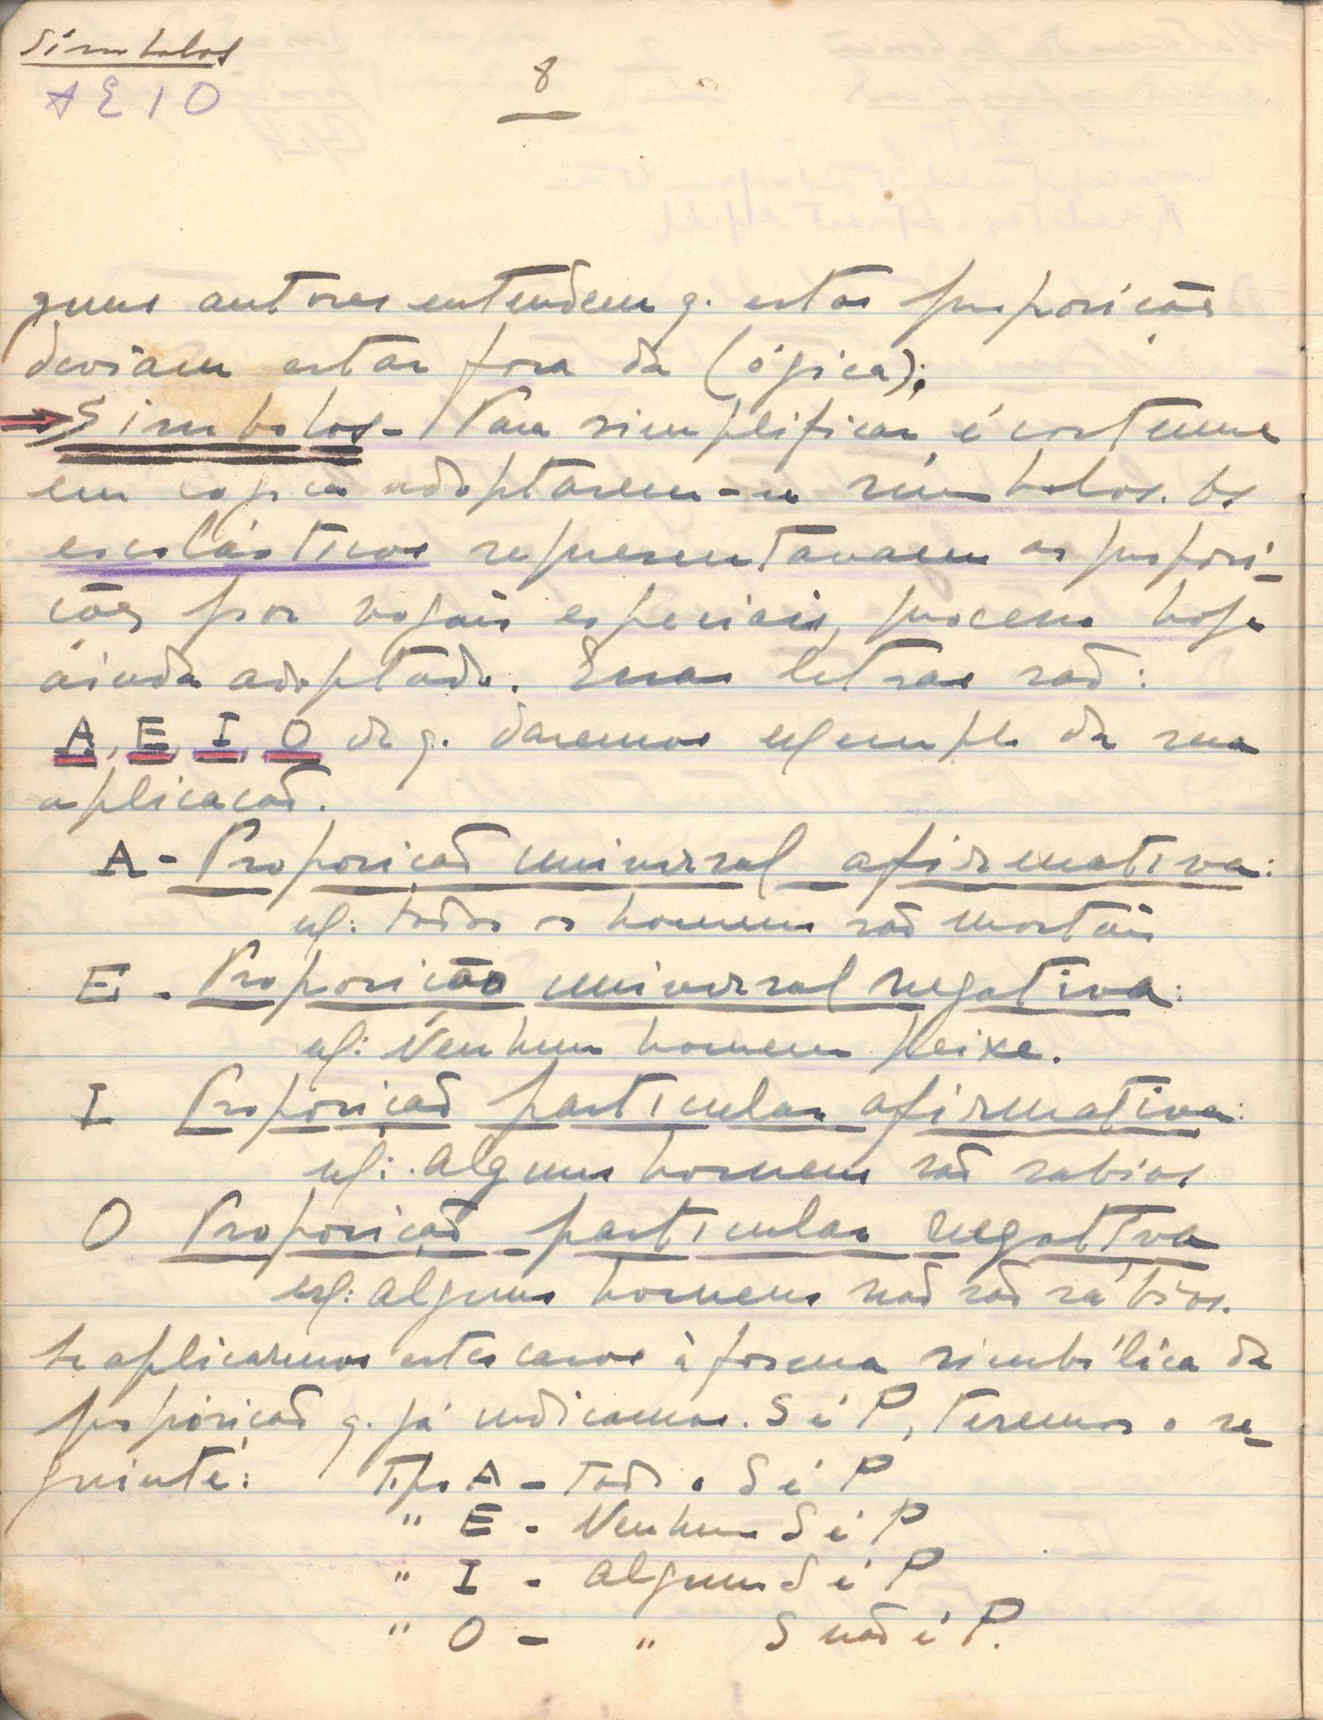 Simbolos
A E I O
8
guns autores entendem q. estas proposições
deviam estar fora da lógica);
Simbolos - Para simplificar, é costume
em lógica adoptarem-se símbolos. Os
escolásticos representavam as proposi-
ções por vogais especiais, processo hoje
ainda adoptado. Essas letras são:
A, E, I, O de q. daremos exemplo da sua
aplicação.
A - Proposição universal afirmativa:
ex: todos os homens são mortais
E - Proposição universal negativa:
ex: Nenhum homem peixe.
I Proposição particular afirmativa:
ex: Alguns homens são sabios
O Proposição particular negativa
ex: Alguns homens não são sábios.
Se aplicarmos estes casos à forma simbólica da
proposição q. já indicamos. S é P, teremos o se-
guinte: Tipo A - Todo o S é P
" E - Nenhum S é P
" I - Algum S é P
" O - " S não é P.